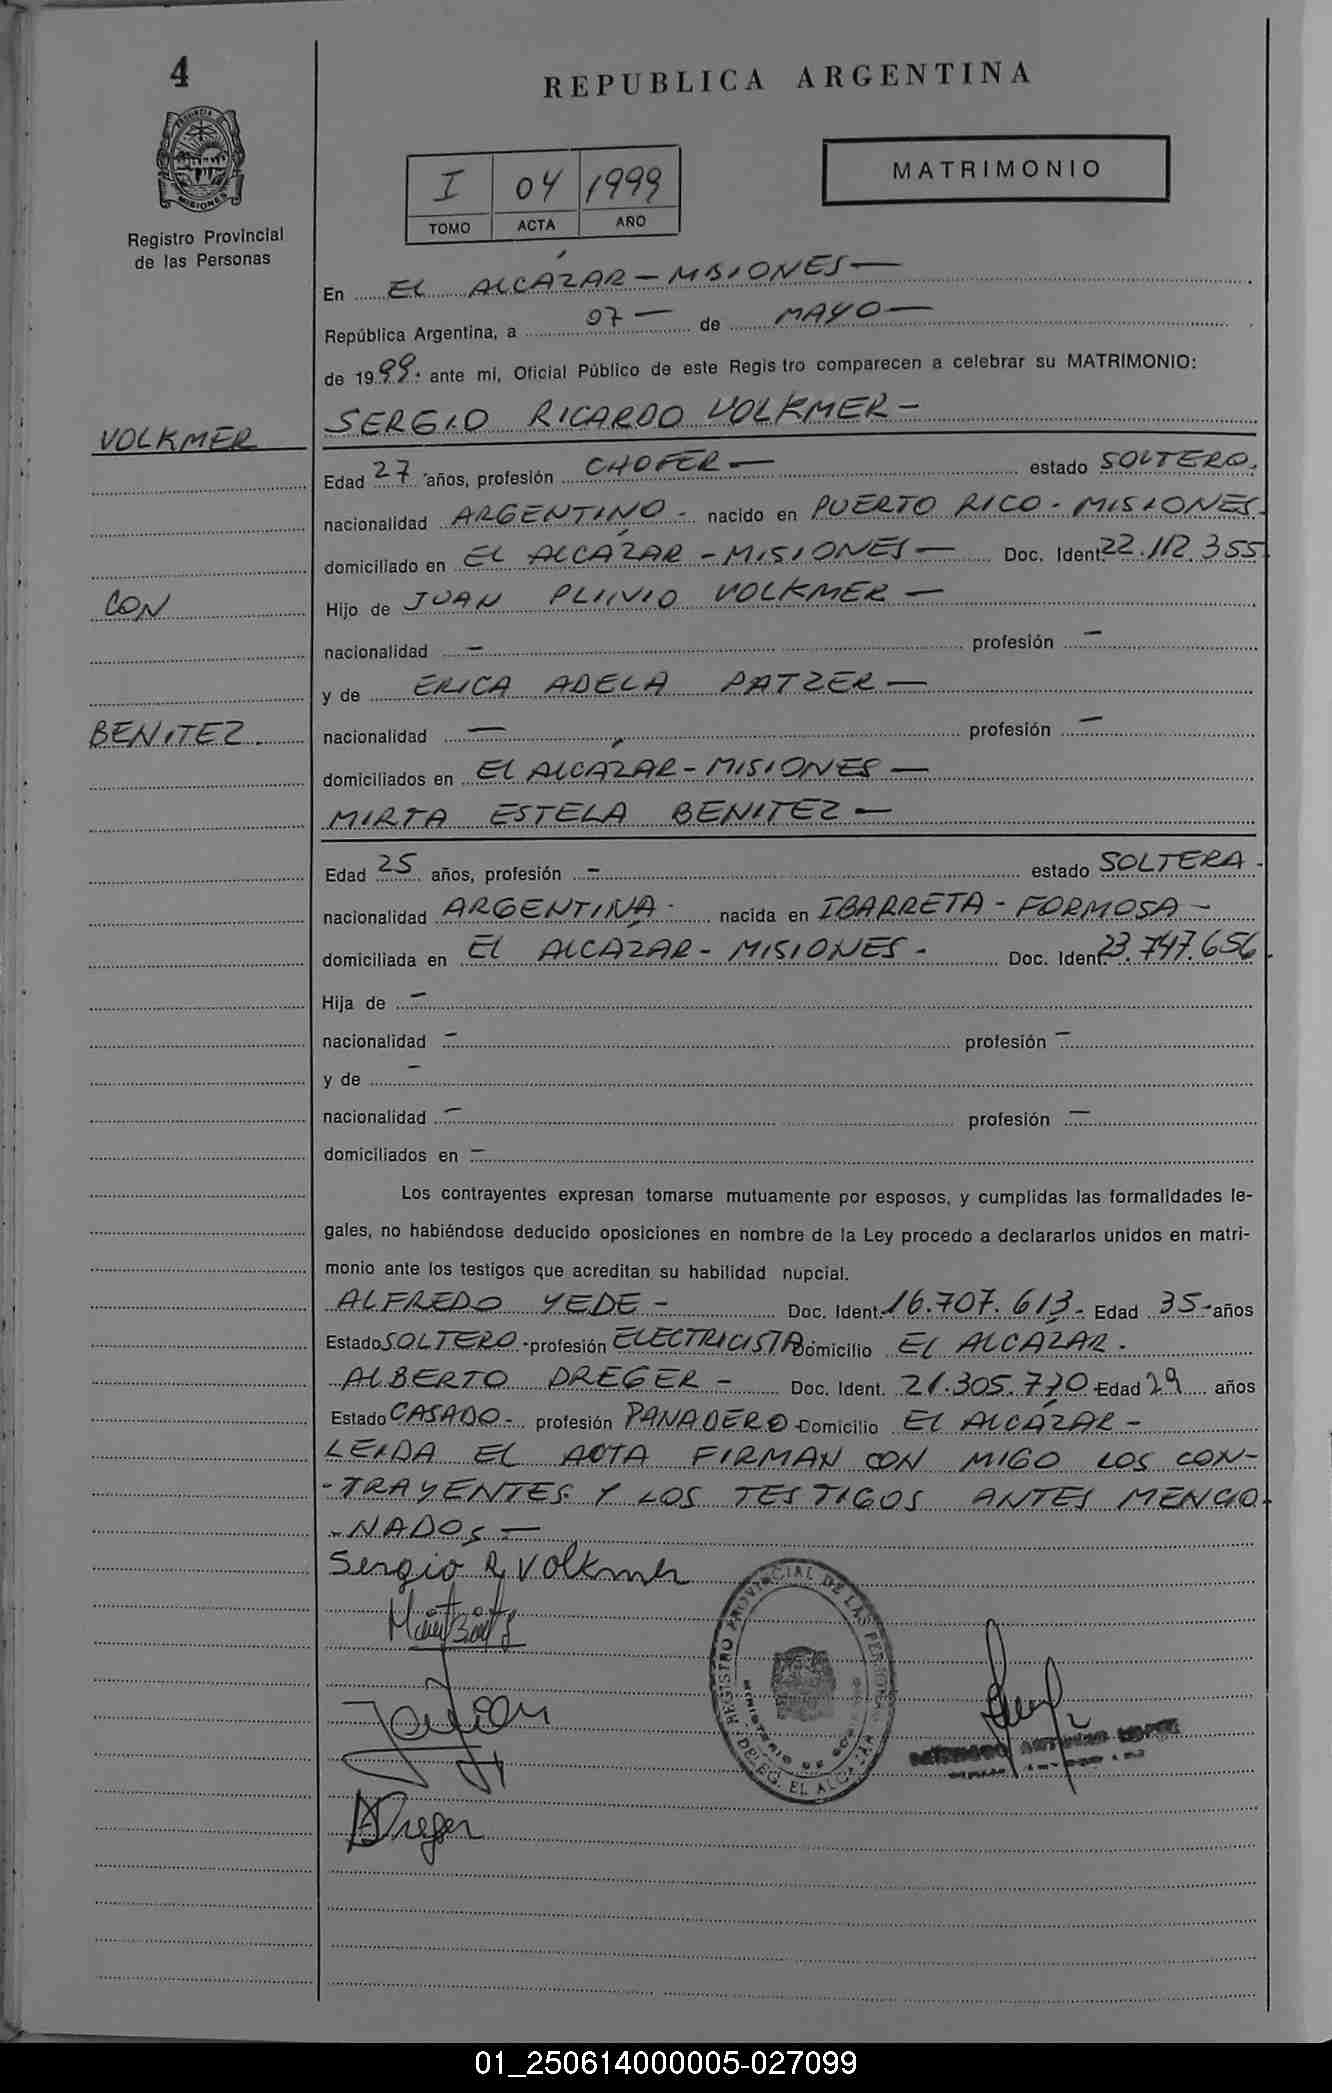 4
REPUBLICA ARGENTINA
PROVINCIA DE
MISIONES
Registro Provincial
de las Personas
I 04 1999
TOMO ACTA AÑO
MATRIMONIO
En EL ALCÁZAR - MISIONES —
República Argentina, a 07 — de MAYO —
de 1999. ante mi, Oficial Público de este Regis tro comparecen a celebrar su MATRIMONIO:
VOLKMER
SERGIO RICARDO VOLKMER -
Edad 27 años, profesión CHOFER — estado SOLTERO.
nacionalidad ARGENTINO - nacido en PUERTO RICO - MISIONES -
domiciliado en EL ALCÁZAR - MISIONES — Doc. Ident. 22.112.355
CON
Hijo de JUAN PLINIO VOLKMER —
nacionalidad — profesión —
y de ERICA ADELA PATZER —
BENITEZ.
nacionalidad — profesión —
domiciliados en EL ALCÁZAR - MISIONES —
MIRTA ESTELA BENITEZ —
Edad 25 años, profesión - estado SOLTERA -
nacionalidad ARGENTINA - nacida en IBARRETA - FORMOSA -
domiciliada en EL ALCÁZAR - MISIONES - Doc. Ident. 23.747.656
Hija de -
nacionalidad - profesión -
y de -
nacionalidad - profesión —
domiciliados en —
Los contrayentes expresan tomarse mutuamente por esposos, y cumplidas las formalidades le-
gales, no habiéndose deducido oposiciones en nombre de la Ley procedo a declararlos unidos en matri-
monio ante los testigos que acreditan su habilidad nupcial.
ALFREDO YEDE - Doc. Ident. 16.707.613- Edad 35- años
Estado SOLTERO - profesión ELECTRICISTA Domicilio EL ALCÁZAR -
ALBERTO DREGER - Doc. Ident. 21.305.770 - Edad 29 años
Estado CASADO - profesión PANADERO Domicilio EL ALCÁZAR -
LEIDA EL ACTA FIRMAN CON MIGO LOS CON-
-TRAYENTES Y LOS TESTIGOS ANTES MENCIO-
-NADOS —
Sergio R. Volkmer
REGISTRO PROVINCIAL DE LAS PERSONAS
MINISTERIO DE GOBIERNO
DELEG. EL ALCAZAR
ADreger
01_250614000005-027099